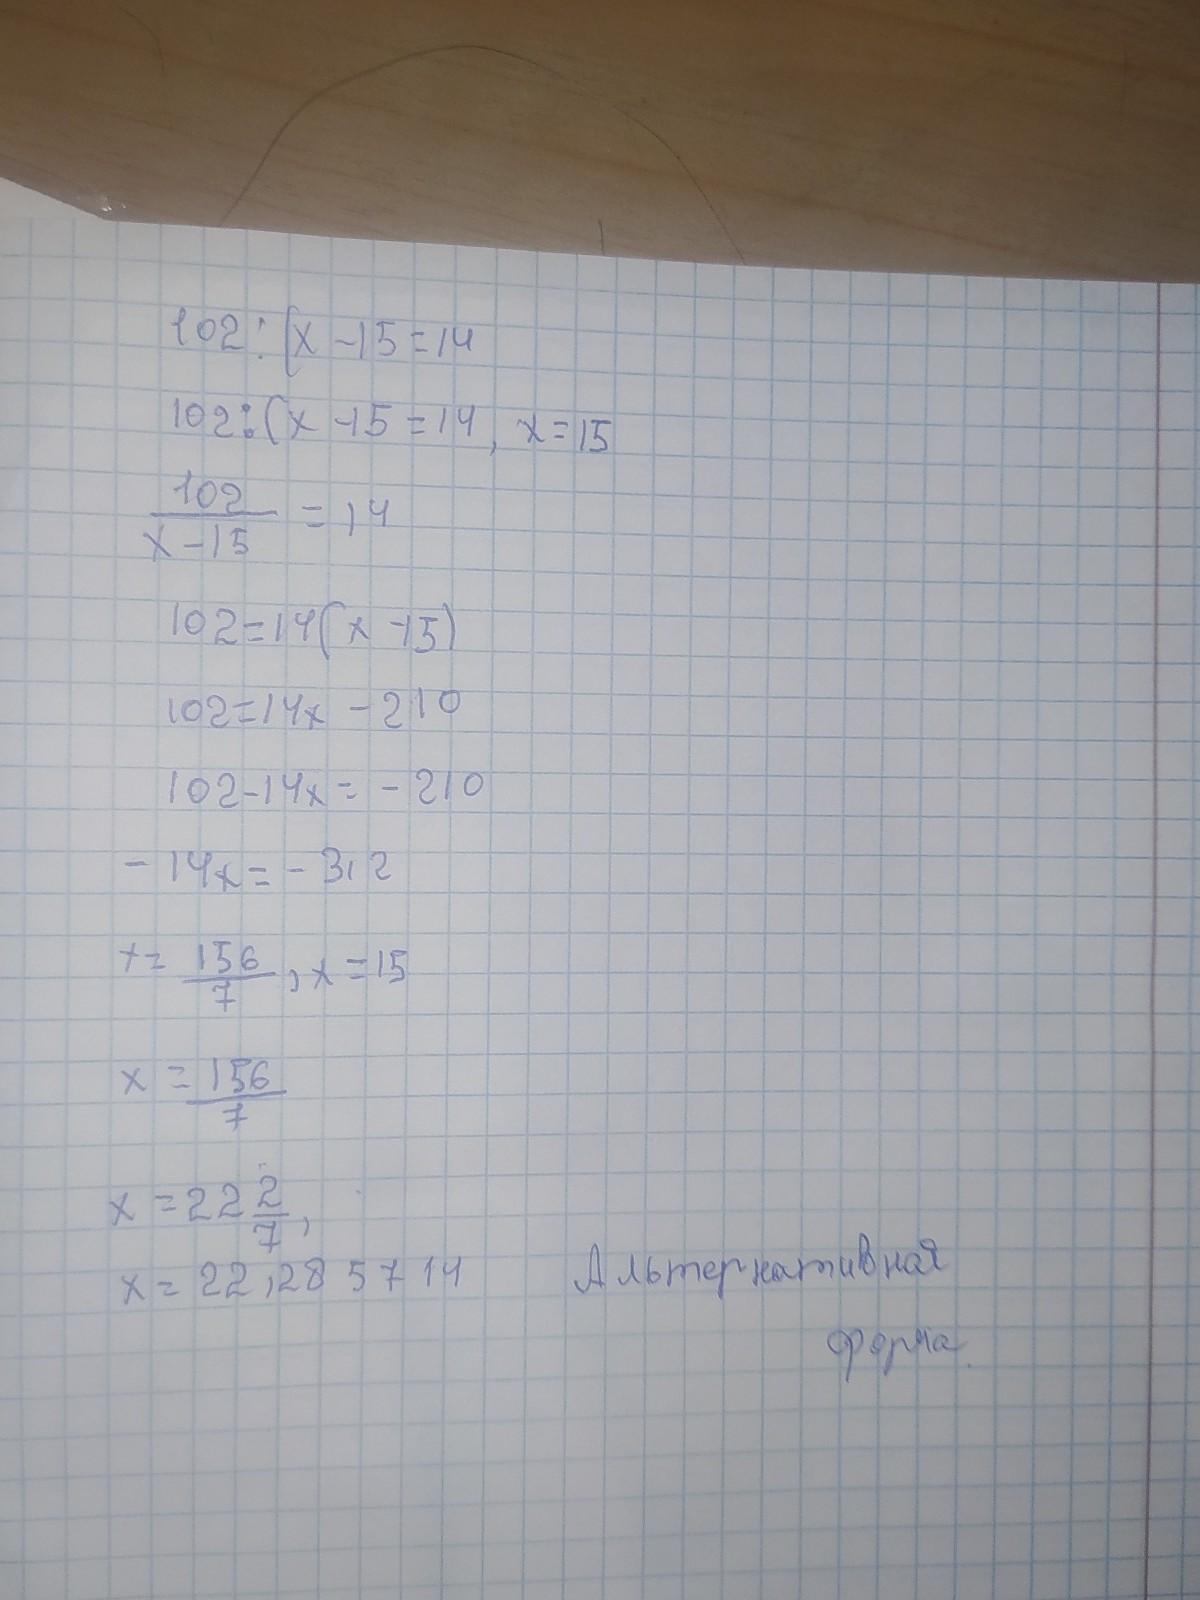 102:(x-15=14
102:(x-15=14, x=15
102/(x-15) = 14
102=14(x-15)
102=14x-210
102-14x=-210
-14x=-312
x=156/7, x=15
x=156/7
x=22 2/7,
x=22,285714 Альтернативная
форма.